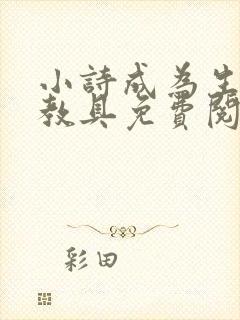 小詩成為生
教具免費閱
彩田